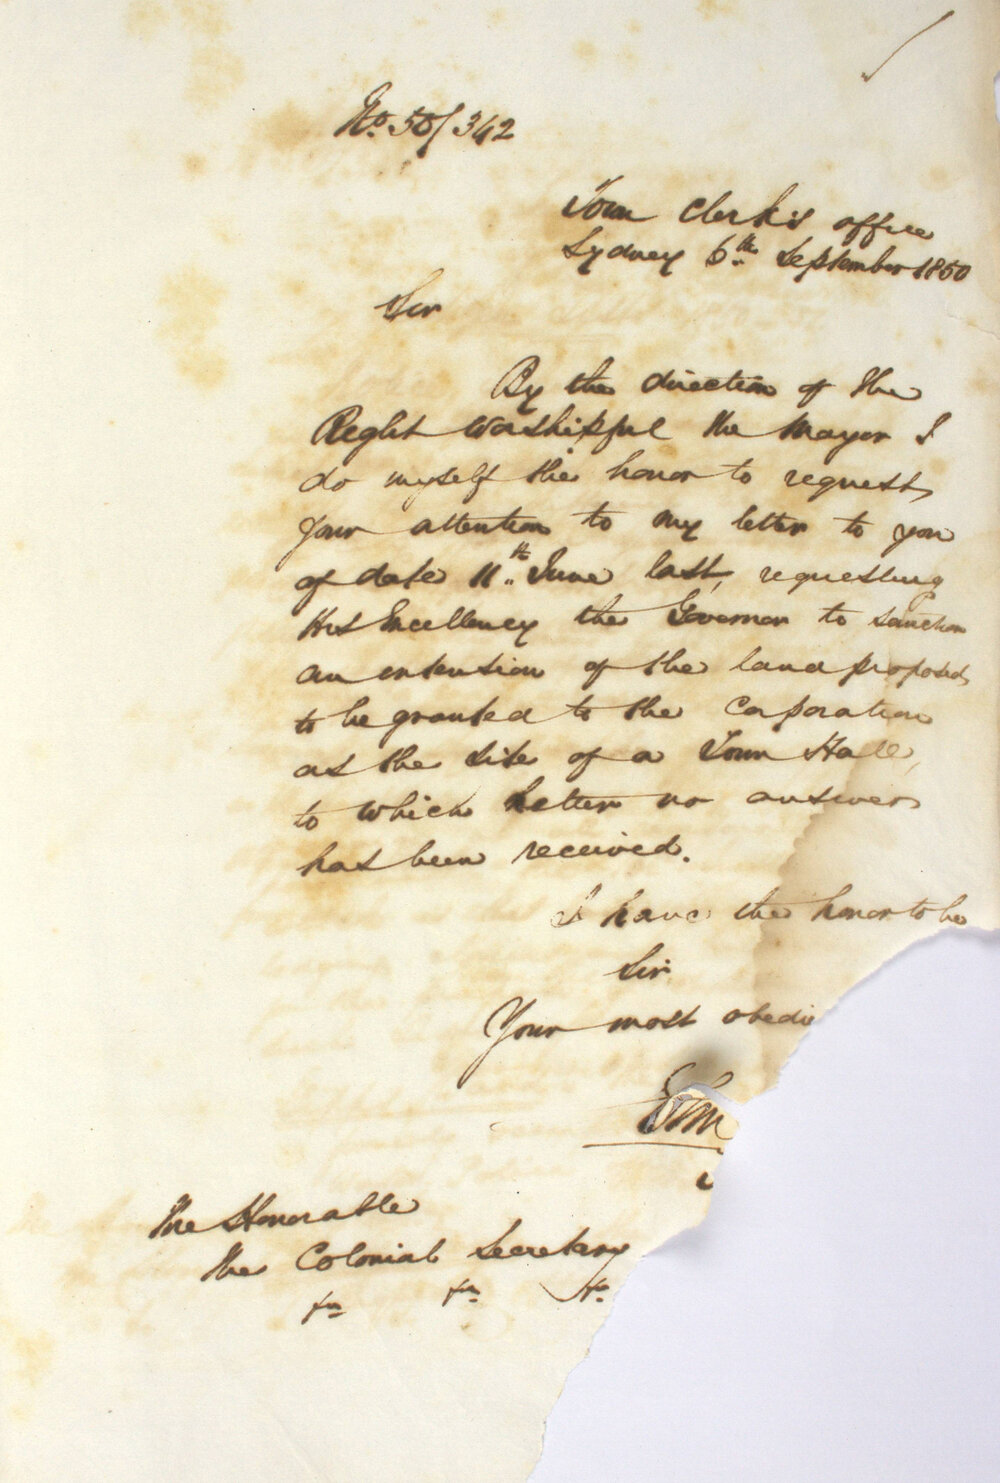 No. 50/342
Town Clerk's office
Sydney 6th September 1850
Sir
By the direction of the
Right Worshipful the Mayor I
do myself the honor to request
your attention to my letter to you
of date 11th June last, requesting
His Excellency the Governor to sanction
an extension of the land proposed
to be granted to the Corporation
as the site of a Town Hall,
to which letter no answer
has been received.
I have the honor to be
Sir
Your most obedie
The Honorable
The Colonial Secretary
&c &c &c